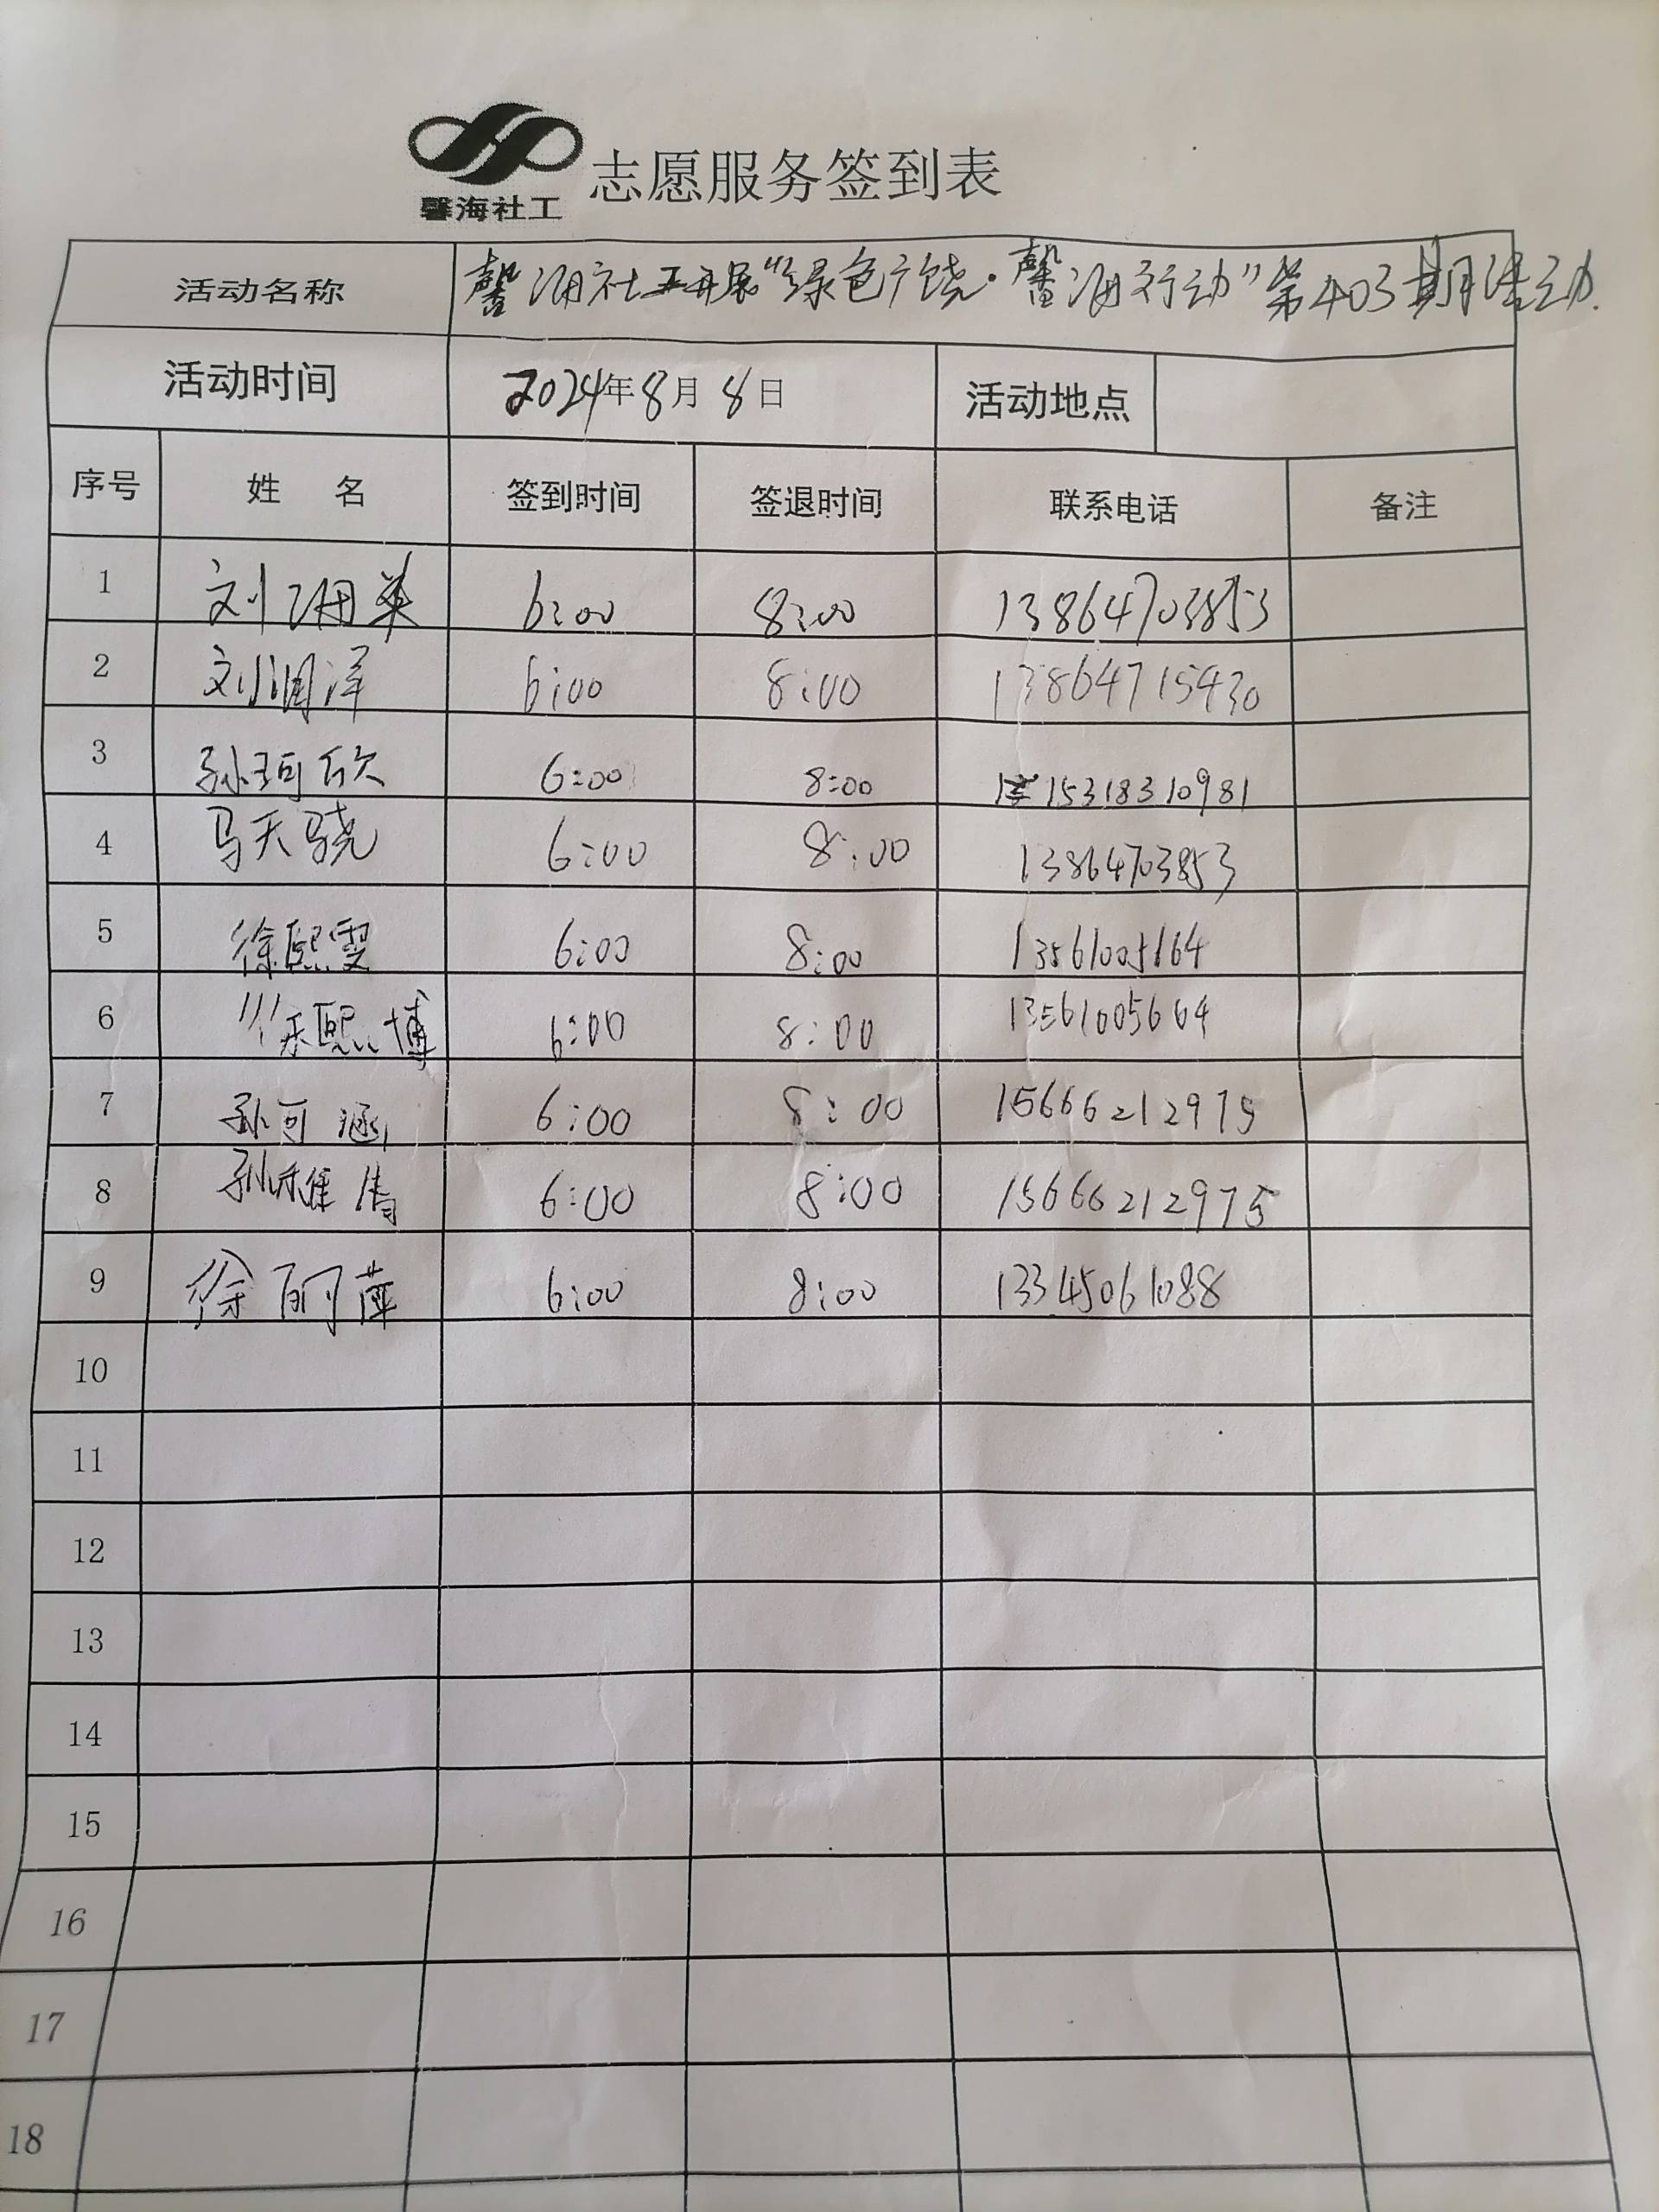 馨海社工
志愿服务签到表
活动名称 馨海社工开展“绿色广饶·馨海行动”第403期活动.
活动时间 2024年8月8日 活动地点
序号 姓 名 签到时间 签退时间 联系电话 备注
1 刘海英 6:00 8:00 13864703853
2 刘润洋 6:00 8:00 13864715430
3 孙珂欣 6:00 8:00 15318310981
4 马天骁 6:00 8:00 13864703853
5 徐熙雯 6:00 8:00 13561005164
6 徐熙博 6:00 8:00 13561005664
7 孙可涵 6:00 8:00 15666212975
8 孙雅倩 6:00 8:00 15666212975
9 徐丽萍 6:00 8:00 13345061088
10
11
12
13
14
15
16
17
18